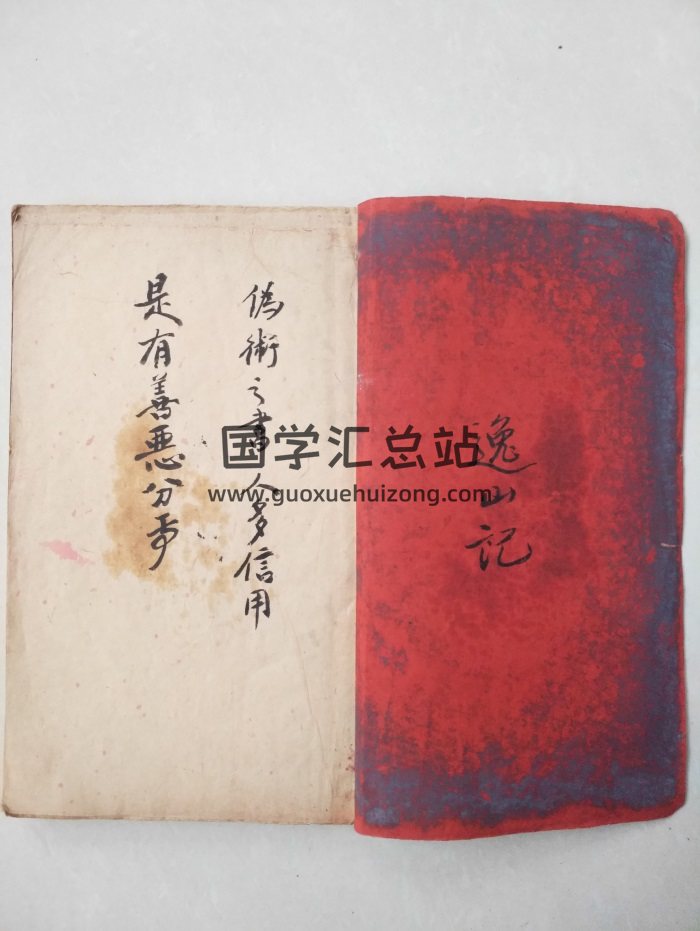 逸山记
偽術之書人多信用
是有善惡分爭
国学汇总站
www.guoxuehuizong.com